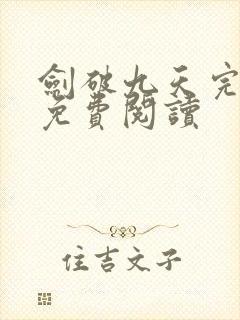 劍破九天完
免費閱讀
住吉文子